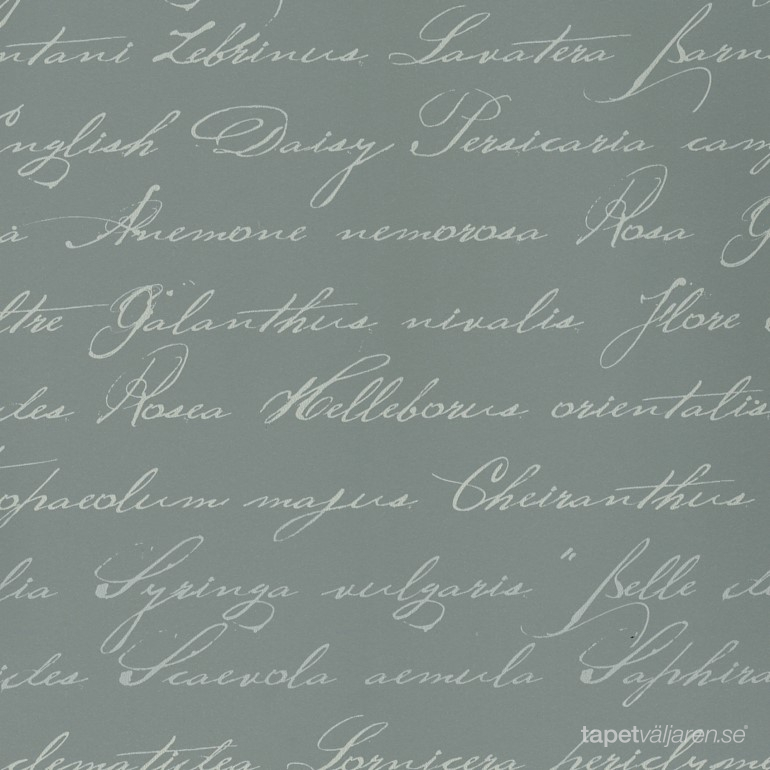 ntani Zebrinus Lavatera Barn
English Daisy Persicaria cam
a Anemone nemorosa Rosa G
ltre Galanthus nivalis Flore
des Rosea Helleborus orientalis
opaeolum majus Cheiranthus
lia Syringa vulgaris "Belle de
ides Scaevola aemula Saphira
clematidea Lornicera periclyme
tapetväljaren.se